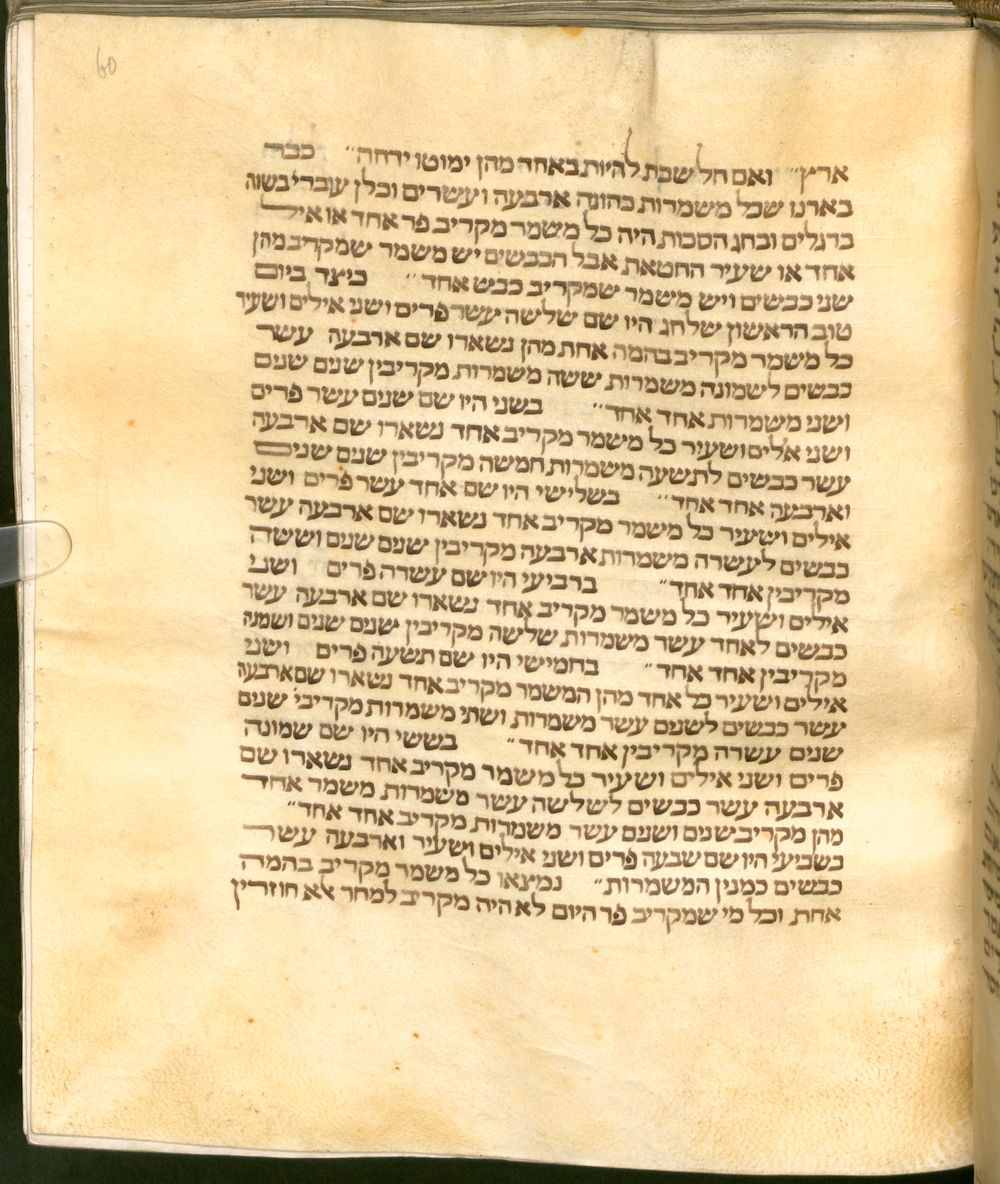 60
ארץ״ ואם חל שבת להיות באחד מהן ימוטו ידחה״ כבר
בארנו שכל משמרות כהונה ארבעה ועשרים וכלן עובדי׳ בשוה
ברגלים ובחג הסכות היה כל משמר מקריב פר אחד או איל
אחד או שעיר החטאת אבל הכבשים יש משמר שמקריב מהן
שני כבשים ויש משמר שמקריב כבש אחד״ כיצד ביום
טוב הראשון שלחג היו שם שלשה עשר פרים ושני אילים ושעיר
כל משמר מקריב בהמה אחת מהן נשארו שם ארבעה עשר
כבשים לשמונה משמרות ששה משמרות מקריבין שנים שנים
ושני משמרות אחד אחד״ בשני היו שם שנים עשר פרים
ושני אלים ושעיר כל משמר מקריב אחד נשארו שם ארבעה
עשר כבשים לתשעה משמרות חמשה מקריבין שנים שנים
וארבעה אחד אחד״ בשלישי היו שם אחד עשר פרים ושני
אילים ושעיר כל משמר מקריב אחד נשארו שם ארבעה עשר
כבשים לעשרה משמרות ארבעה מקריבין שנים שנים וששה
מקריבין אחד אחד״ ברביעי היו שם עשרה פרים ושני
אילים ושעיר כל משמר מקריב אחד נשארו שם ארבעה עשר
כבשים לאחד עשר משמרות שלשה מקריבין שנים שנים ושמנה
מקריבין אחד אחד״ בחמישי היו שם תשעה פרים ושני
אילים ושעיר כל אחד מהן המשמר מקריב אחד נשארו שם ארבעה
עשר כבשים לשנים עשר משמרות ושתי משמרות מקריבי׳ שנים
שנים עשרה מקריבין אחד אחד״ בששי היו שם שמונה
פרים ושני אילים ושעיר כל משמר מקריב אחד נשארו שם
ארבעה עשר כבשים לשלשה עשר משמרות משמר אחד
מהן מקריב שנים ושנים עשר משמרות מקריב אחד אחד״
בשביעי היו שם שבעה פרים ושני אילים ושעיר וארבעה עשר
כבשים כמנין המשמרות״ נמצאו כל משמר מקריב בהמה
אחת וכל מי שמקריב פר היום לא היה מקריב למחר אלא חוזרין